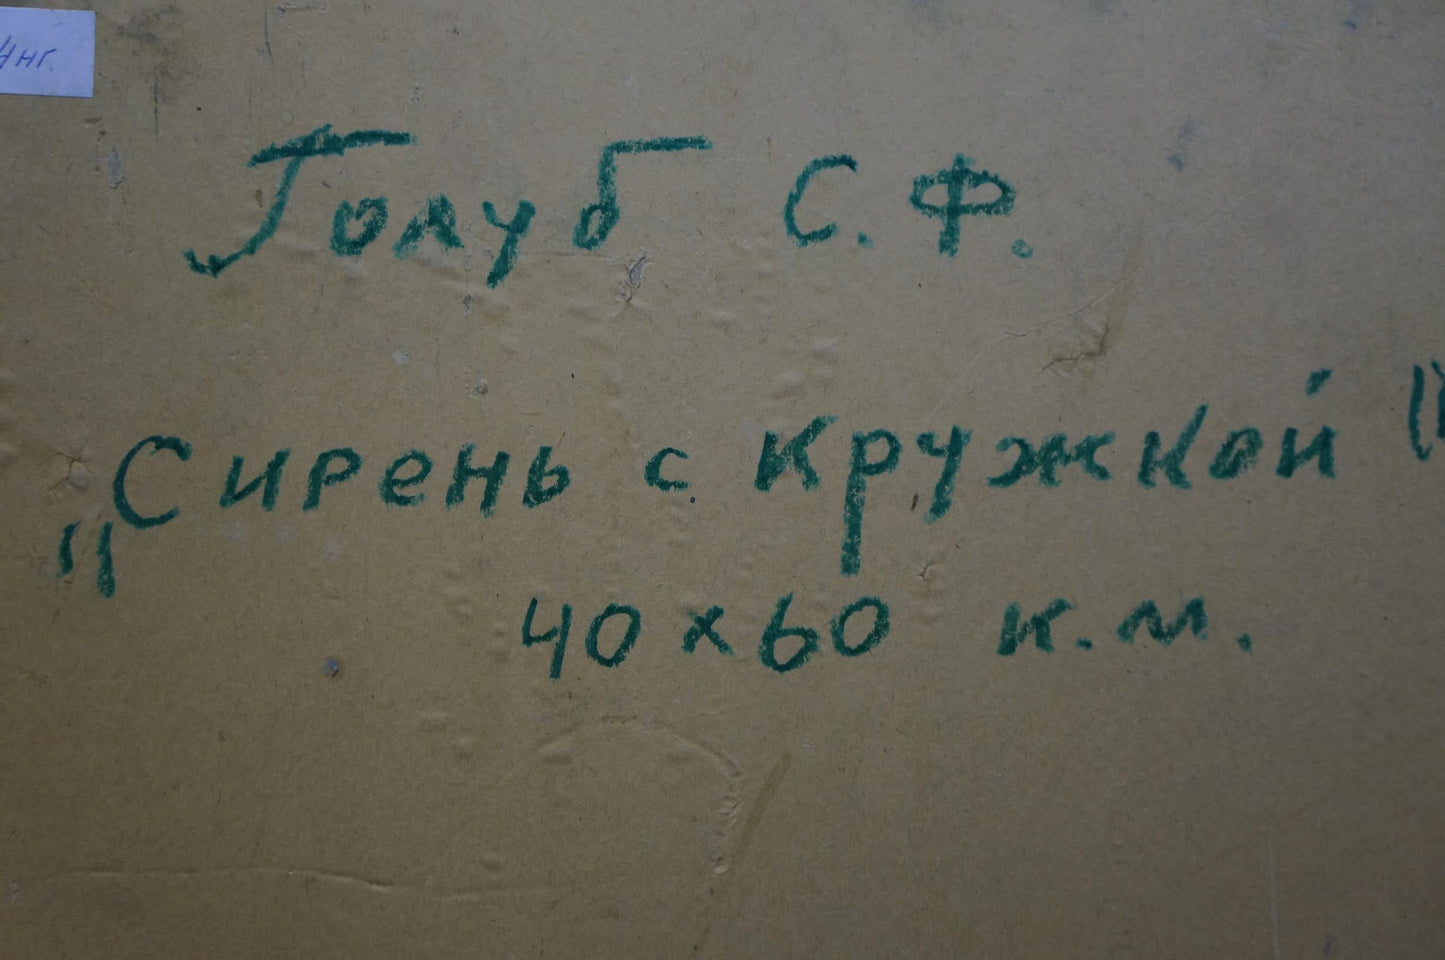 Голуб С. Ф.
„Сирень с кружкой"
40 x 60 к. м.